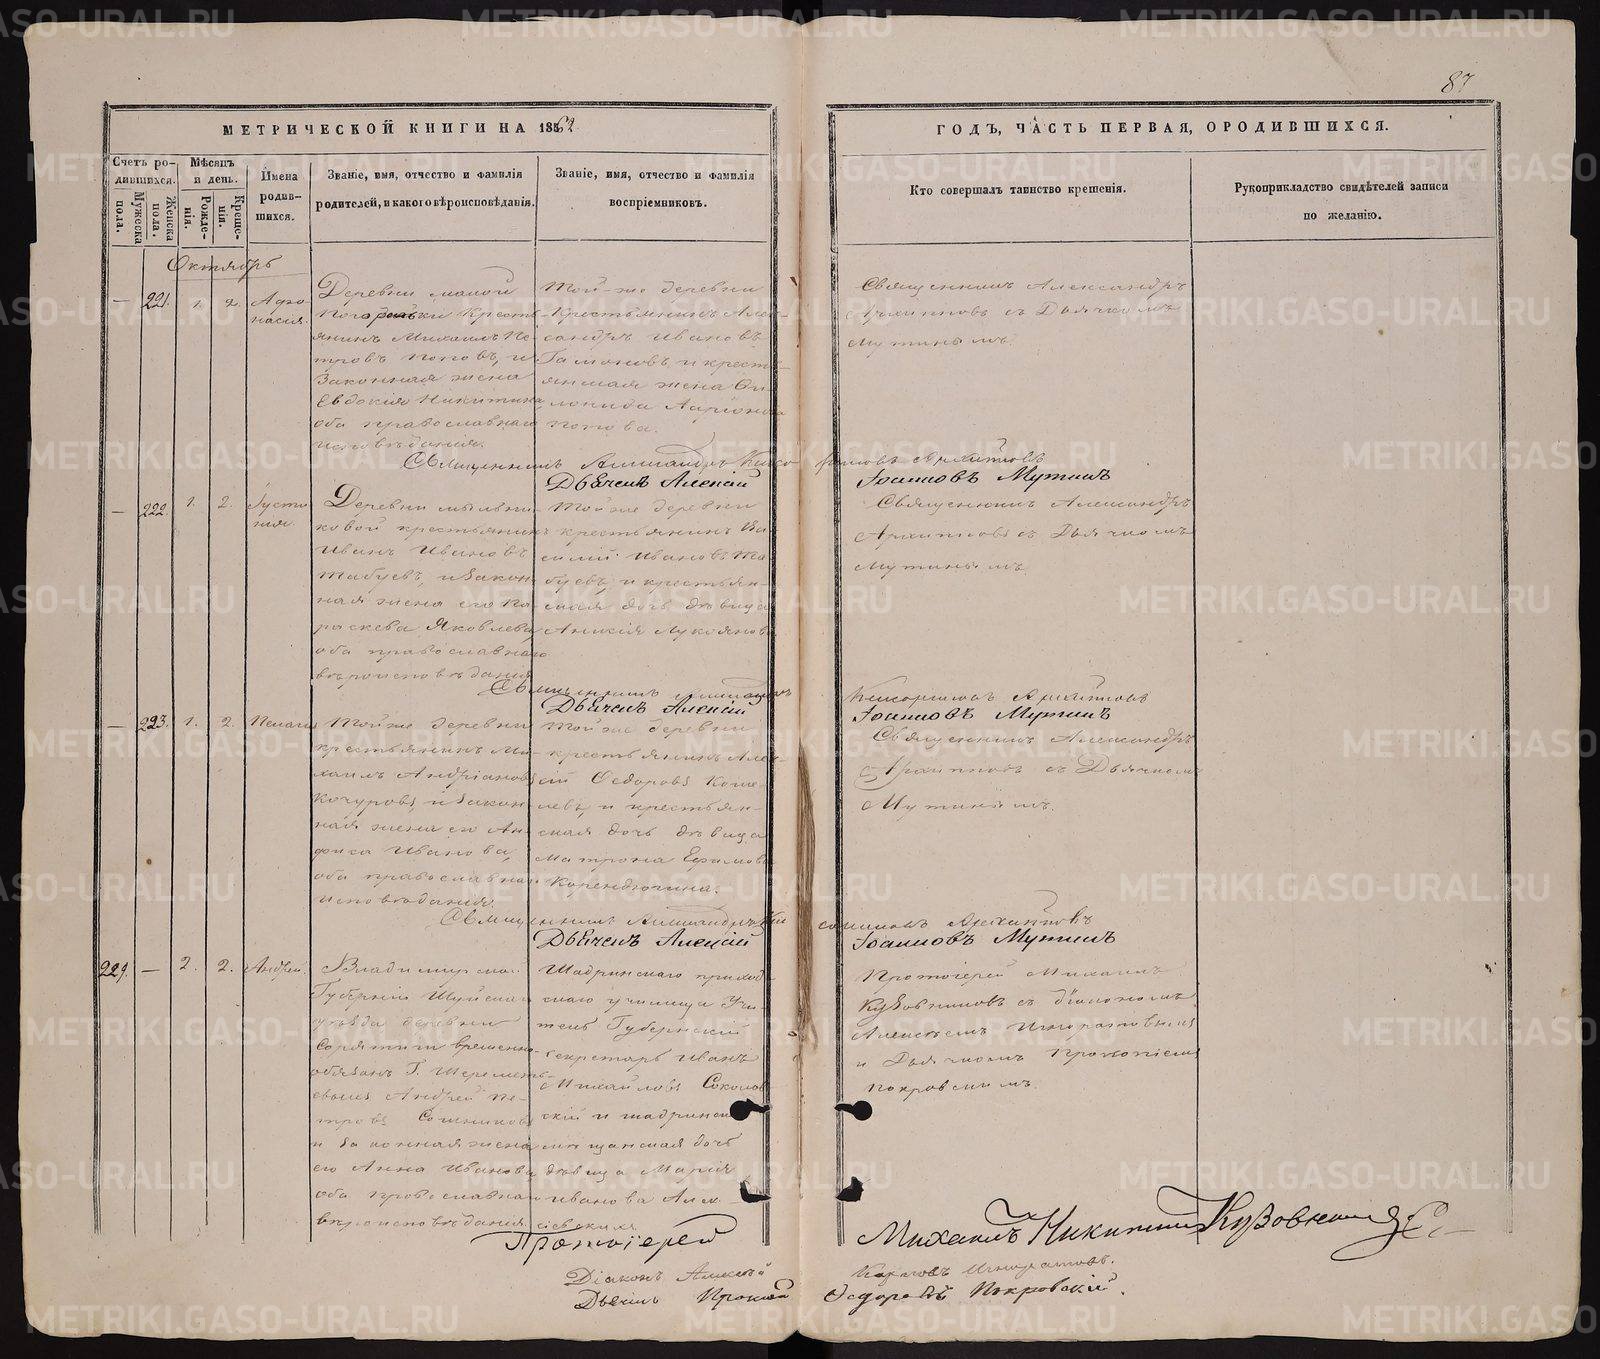 87
МЕТРИЧЕСКОЙ КНИГИ НА 1862
ГОДЪ, ЧАСТЬ ПЕРВАЯ, О РОДИВШИХСЯ.
Счетъ ро-
дившихся.
Мужеска
пола.
Женска
пола.
Мѣсяцъ
и день.
Рожде-
нія.
Креще-
нія.
Имена
родив-
шихся.
Званіе, имя, отчество и фамилія
родителей, и какого вѣроисповѣданія.
Званіе, имя, отчество и фамилія
воспріемниковъ.
Кто совершалъ таинство крещенія.
Рукоприкладство свидѣтелей записи
по желанію.
Октябрь
— 221. 1. 2. Афо-
насія.
Деревни малой
Погорѣлки Кресть-
янинъ Михаилъ Пе-
тровъ Поповъ, и
Законная жена
Евдокія Никитина,
оба православнаго
исповѣданія.
Той-же деревни
Крестьянинъ Алек-
сандръ Ивановъ
Гамоновъ, и кресть-
янская жена
Ларіонова
Попова.
Священникъ Александръ
Архиповъ съ Дьячкомъ
Мутинымъ.
Священникъ Александръ
Архиповъ
Дьячекъ Алексій
Іоанновъ Мутинъ
— 222. 1. 2. Іусти-
нія
Деревни Мыльни-
ковой крестьянинъ
Иванъ Ивановъ
Табуевъ, и закон-
ная жена его Па-
раскева Яковлева,
оба православнаго
вѣроисповѣданія
Той же деревни
крестьянинъ Ва-
силій Ивановъ Та-
буевъ, и крестьян-
ская дочь дѣвица
Анисія Лукоянова
Священникъ Александръ
Архиповъ съ Дьячкомъ
Мутинымъ
Священникъ
Архиповъ
Дьячекъ Алексій
Іоанновъ Мутинъ
— 223. 1. 2. Пелагія
Той же деревни
крестьянинъ Ми-
хаилъ Андріановъ
Кочуровъ, и закон-
ная жена его Ан-
фиса Иванова,
оба православнаго
исповѣданія.
Той же деревни
крестьянинъ Алек-
сій Ѳедоровъ Коше-
левъ, и крестьян-
ская дочь дѣвица
Матрона Ефимова
Священникъ Александръ
Архиповъ съ Дьячкомъ
Мутинымъ.
Священникъ Александръ
Архиповъ
Дьячекъ Алексій
Іоанновъ Мутинъ
229. — 2. 2. Андрей.
Владимирской
Губерніи Шуйскаго
уѣзда деревни
временно-
обязан. Г. Шереметь-
евыхъ Андрей Пе-
тровъ
и Законная жена
его Анна Иванова,
оба православнаго
вѣроисповѣданія.
Шадринскаго приход-
скаго училища Учи-
тель Губернскій
секретарь Иванъ
Михайловъ Соколов-
скій и шадринская
мѣщанская дочь
дѣвица Марія
Иванова
Протоіерей Михаилъ
Кузовниковъ съ діакономъ
Алексѣемъ Игнатовымъ
и Дьячкомъ Прокопіемъ
Покровскимъ.
Протоіерей Михаилъ Никитинъ Кузовниковъ
Діаконъ Алексѣй
Дьячекъ Прокопій Ѳедоровъ Покровскій.
METRIKI.GASO-URAL.RU